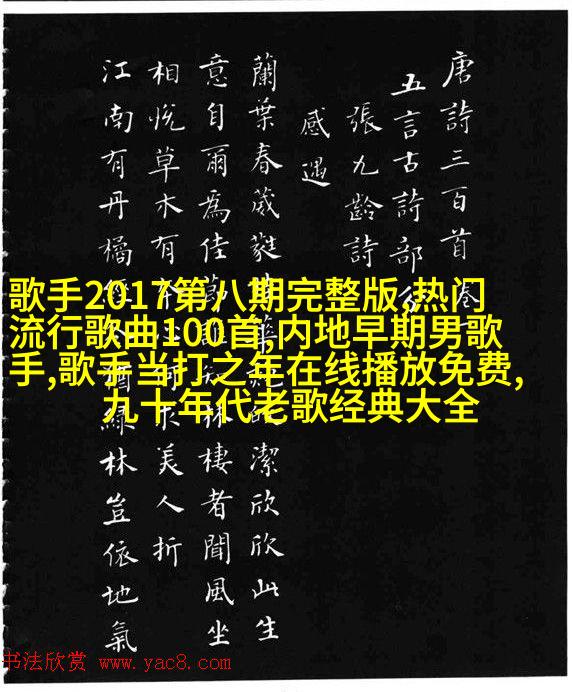 唐詩三百首卷
五言古詩部
張九齡詩
感遇
蘭葉春葳蕤 潔欣欣此生
意自爾為佳 林棲者聞風坐
相悅草木有 求美人折
江南有丹橘 綠林豈依地氣
歌手2017第八期完整版,热门
流行歌曲100首,内地早期男歌
手,歌手当打之年在线播放免费,
九十年代老歌经典大全
书法欣赏 www.yac8.com